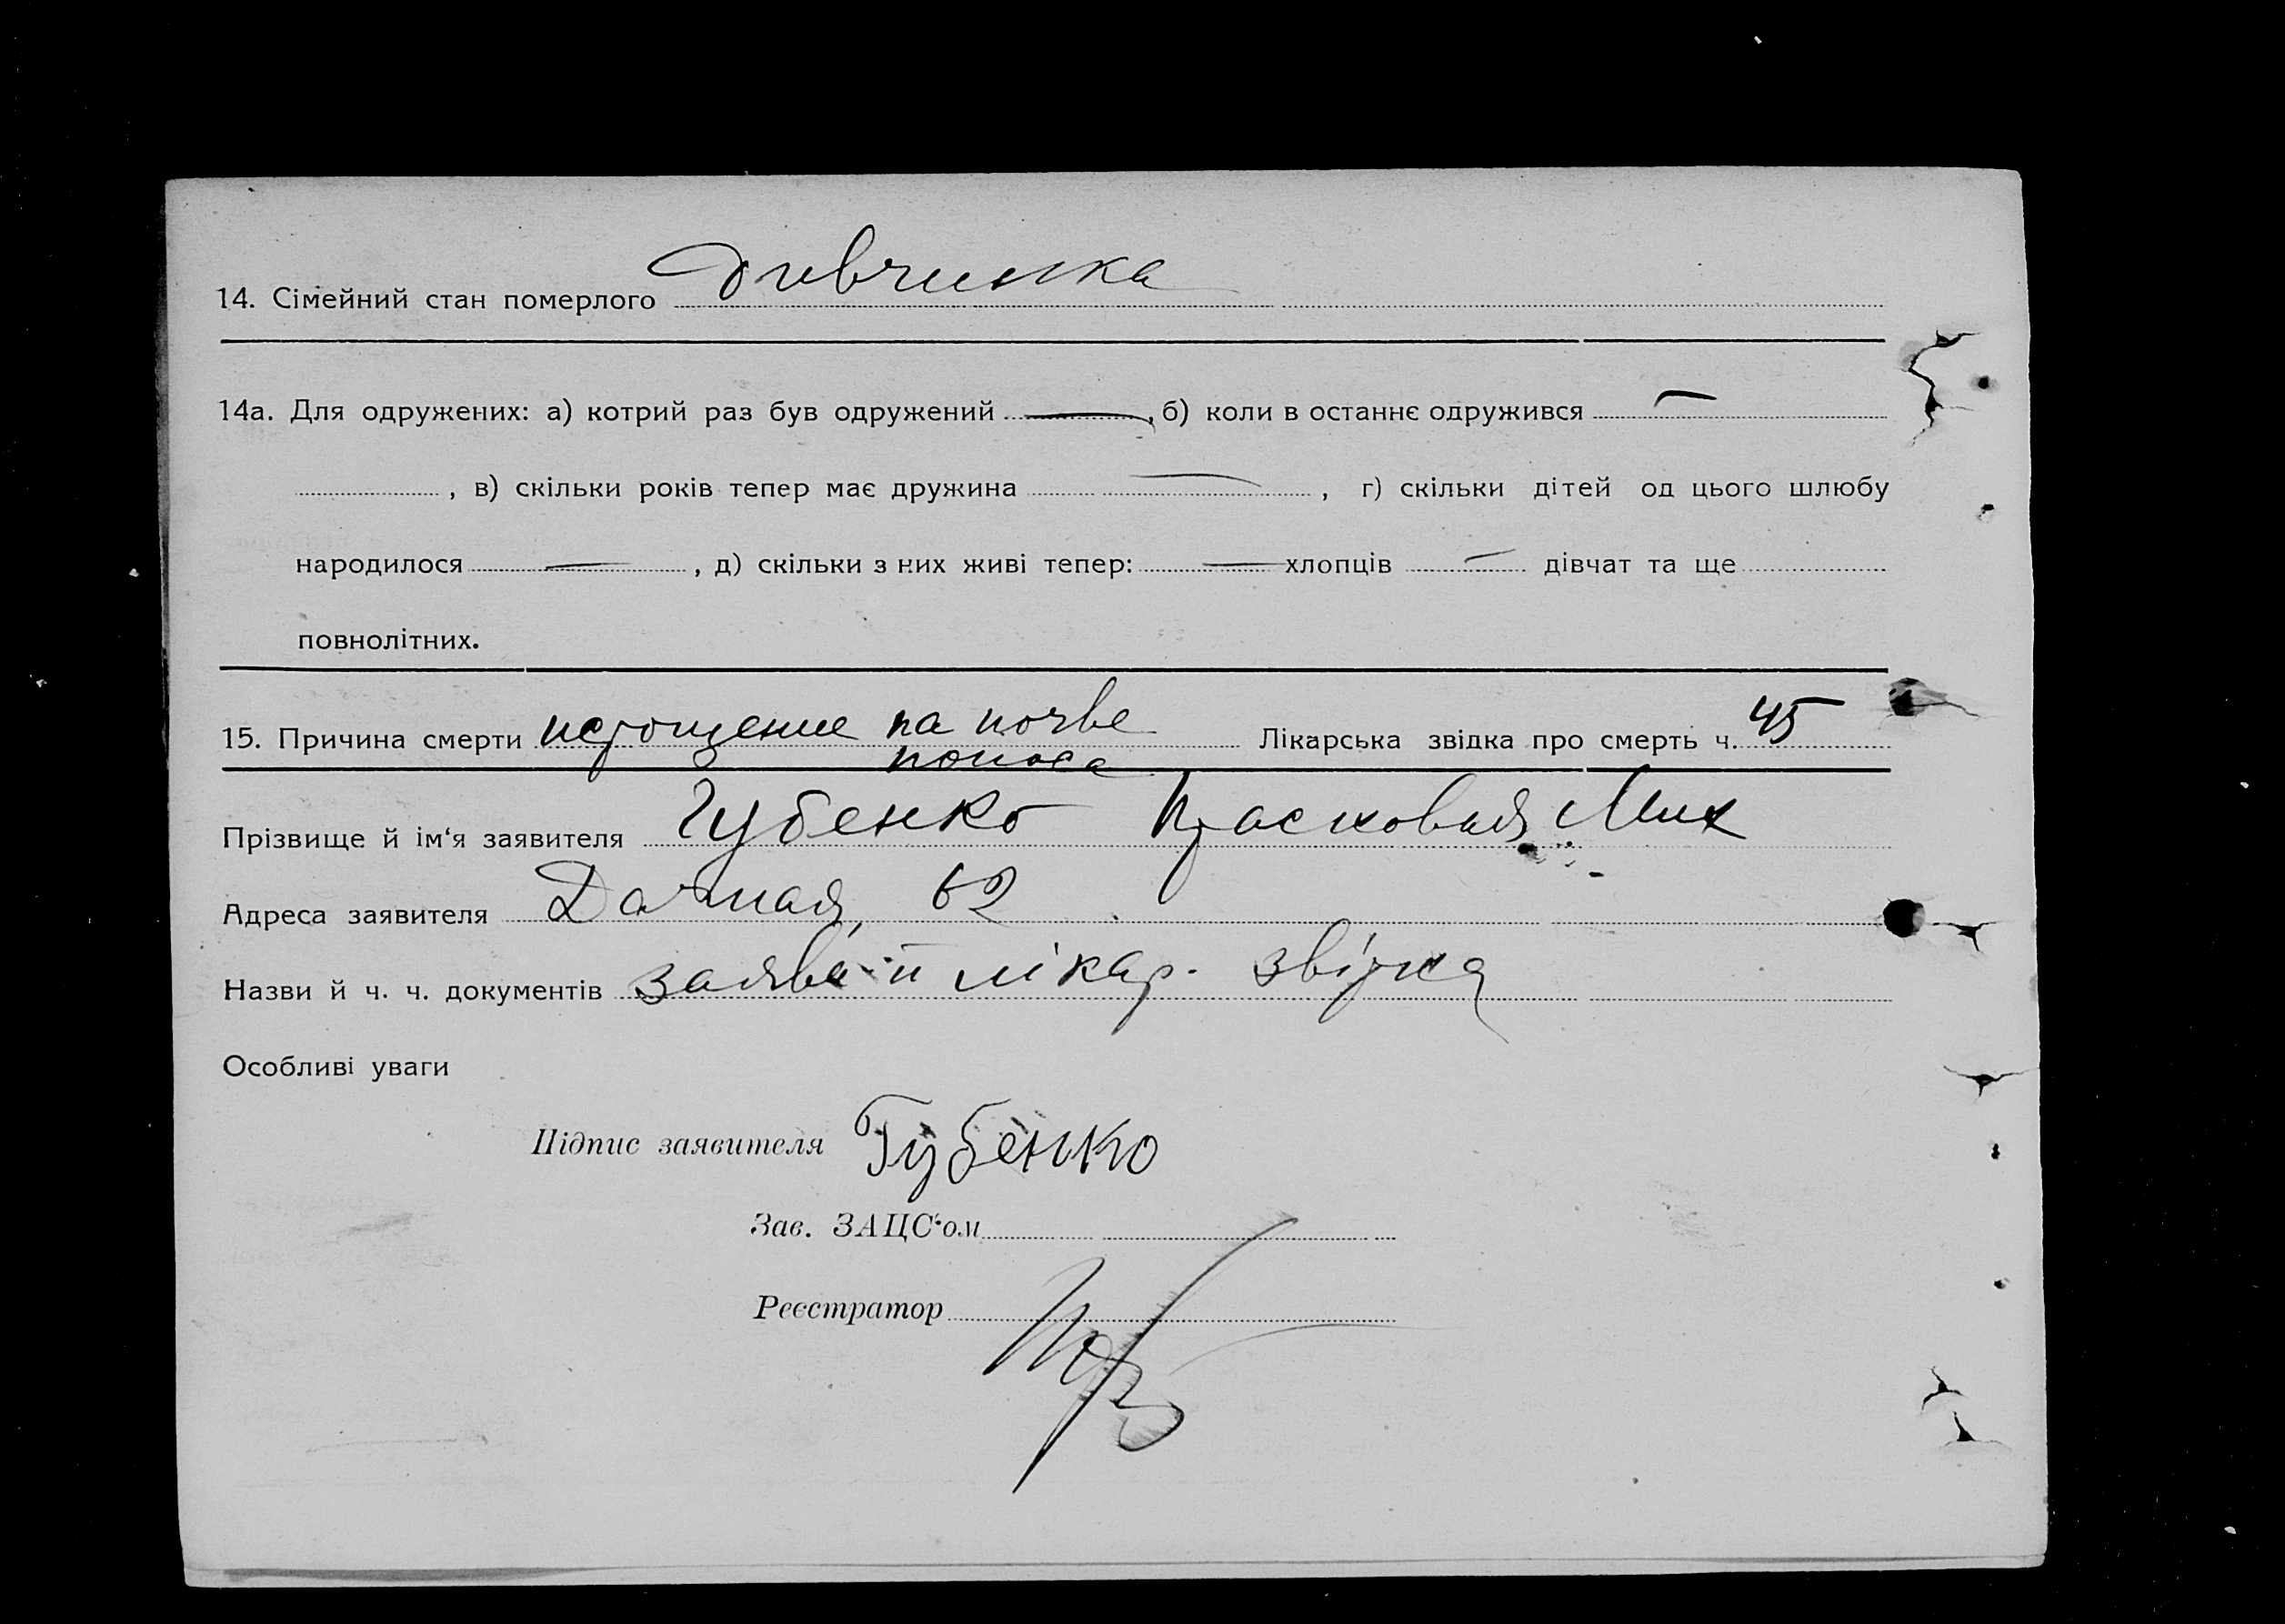 14. Сімейний стан померлого дивчинка
14а. Для одружених: а) котрий раз був одружений —, б) коли в останнє одружився —
, в) скільки років тепер має дружина — , г) скільки дітей од цього шлюбу
народилося — , д) скільки з них живі тепер: — хлопців — дівчат та ще
повнолітних.
15. Причина смерти истощение на почве Лікарська звідка про смерть ч. 45
поноса
Прізвище й ім'я заявителя Губенко Прасковия Мих
Адреса заявителя Дачная, 62
Назви й ч. ч. документів заява й лікар. звідка
Особливі уваги
Підпис заявителя Губенко
Зав. ЗАЦС'ом
Реєстратор